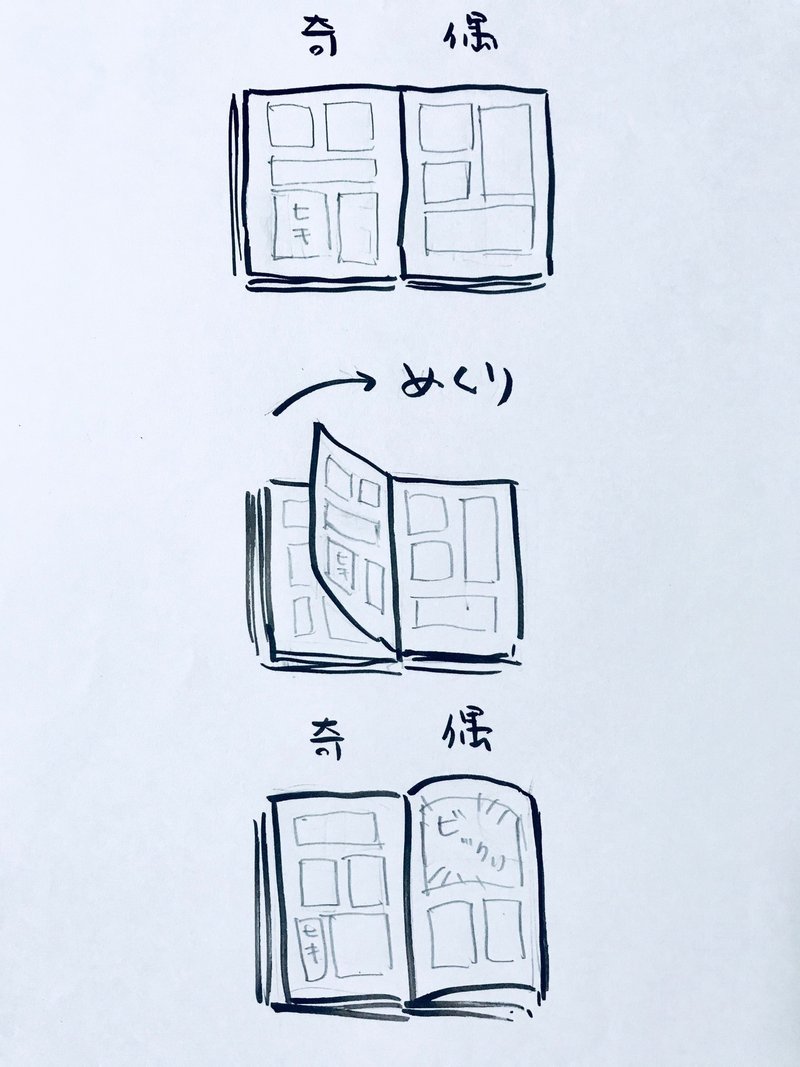 奇 偶
ヒキ
めくり
ヒキ
奇 偶
ビックリ
ヒキ